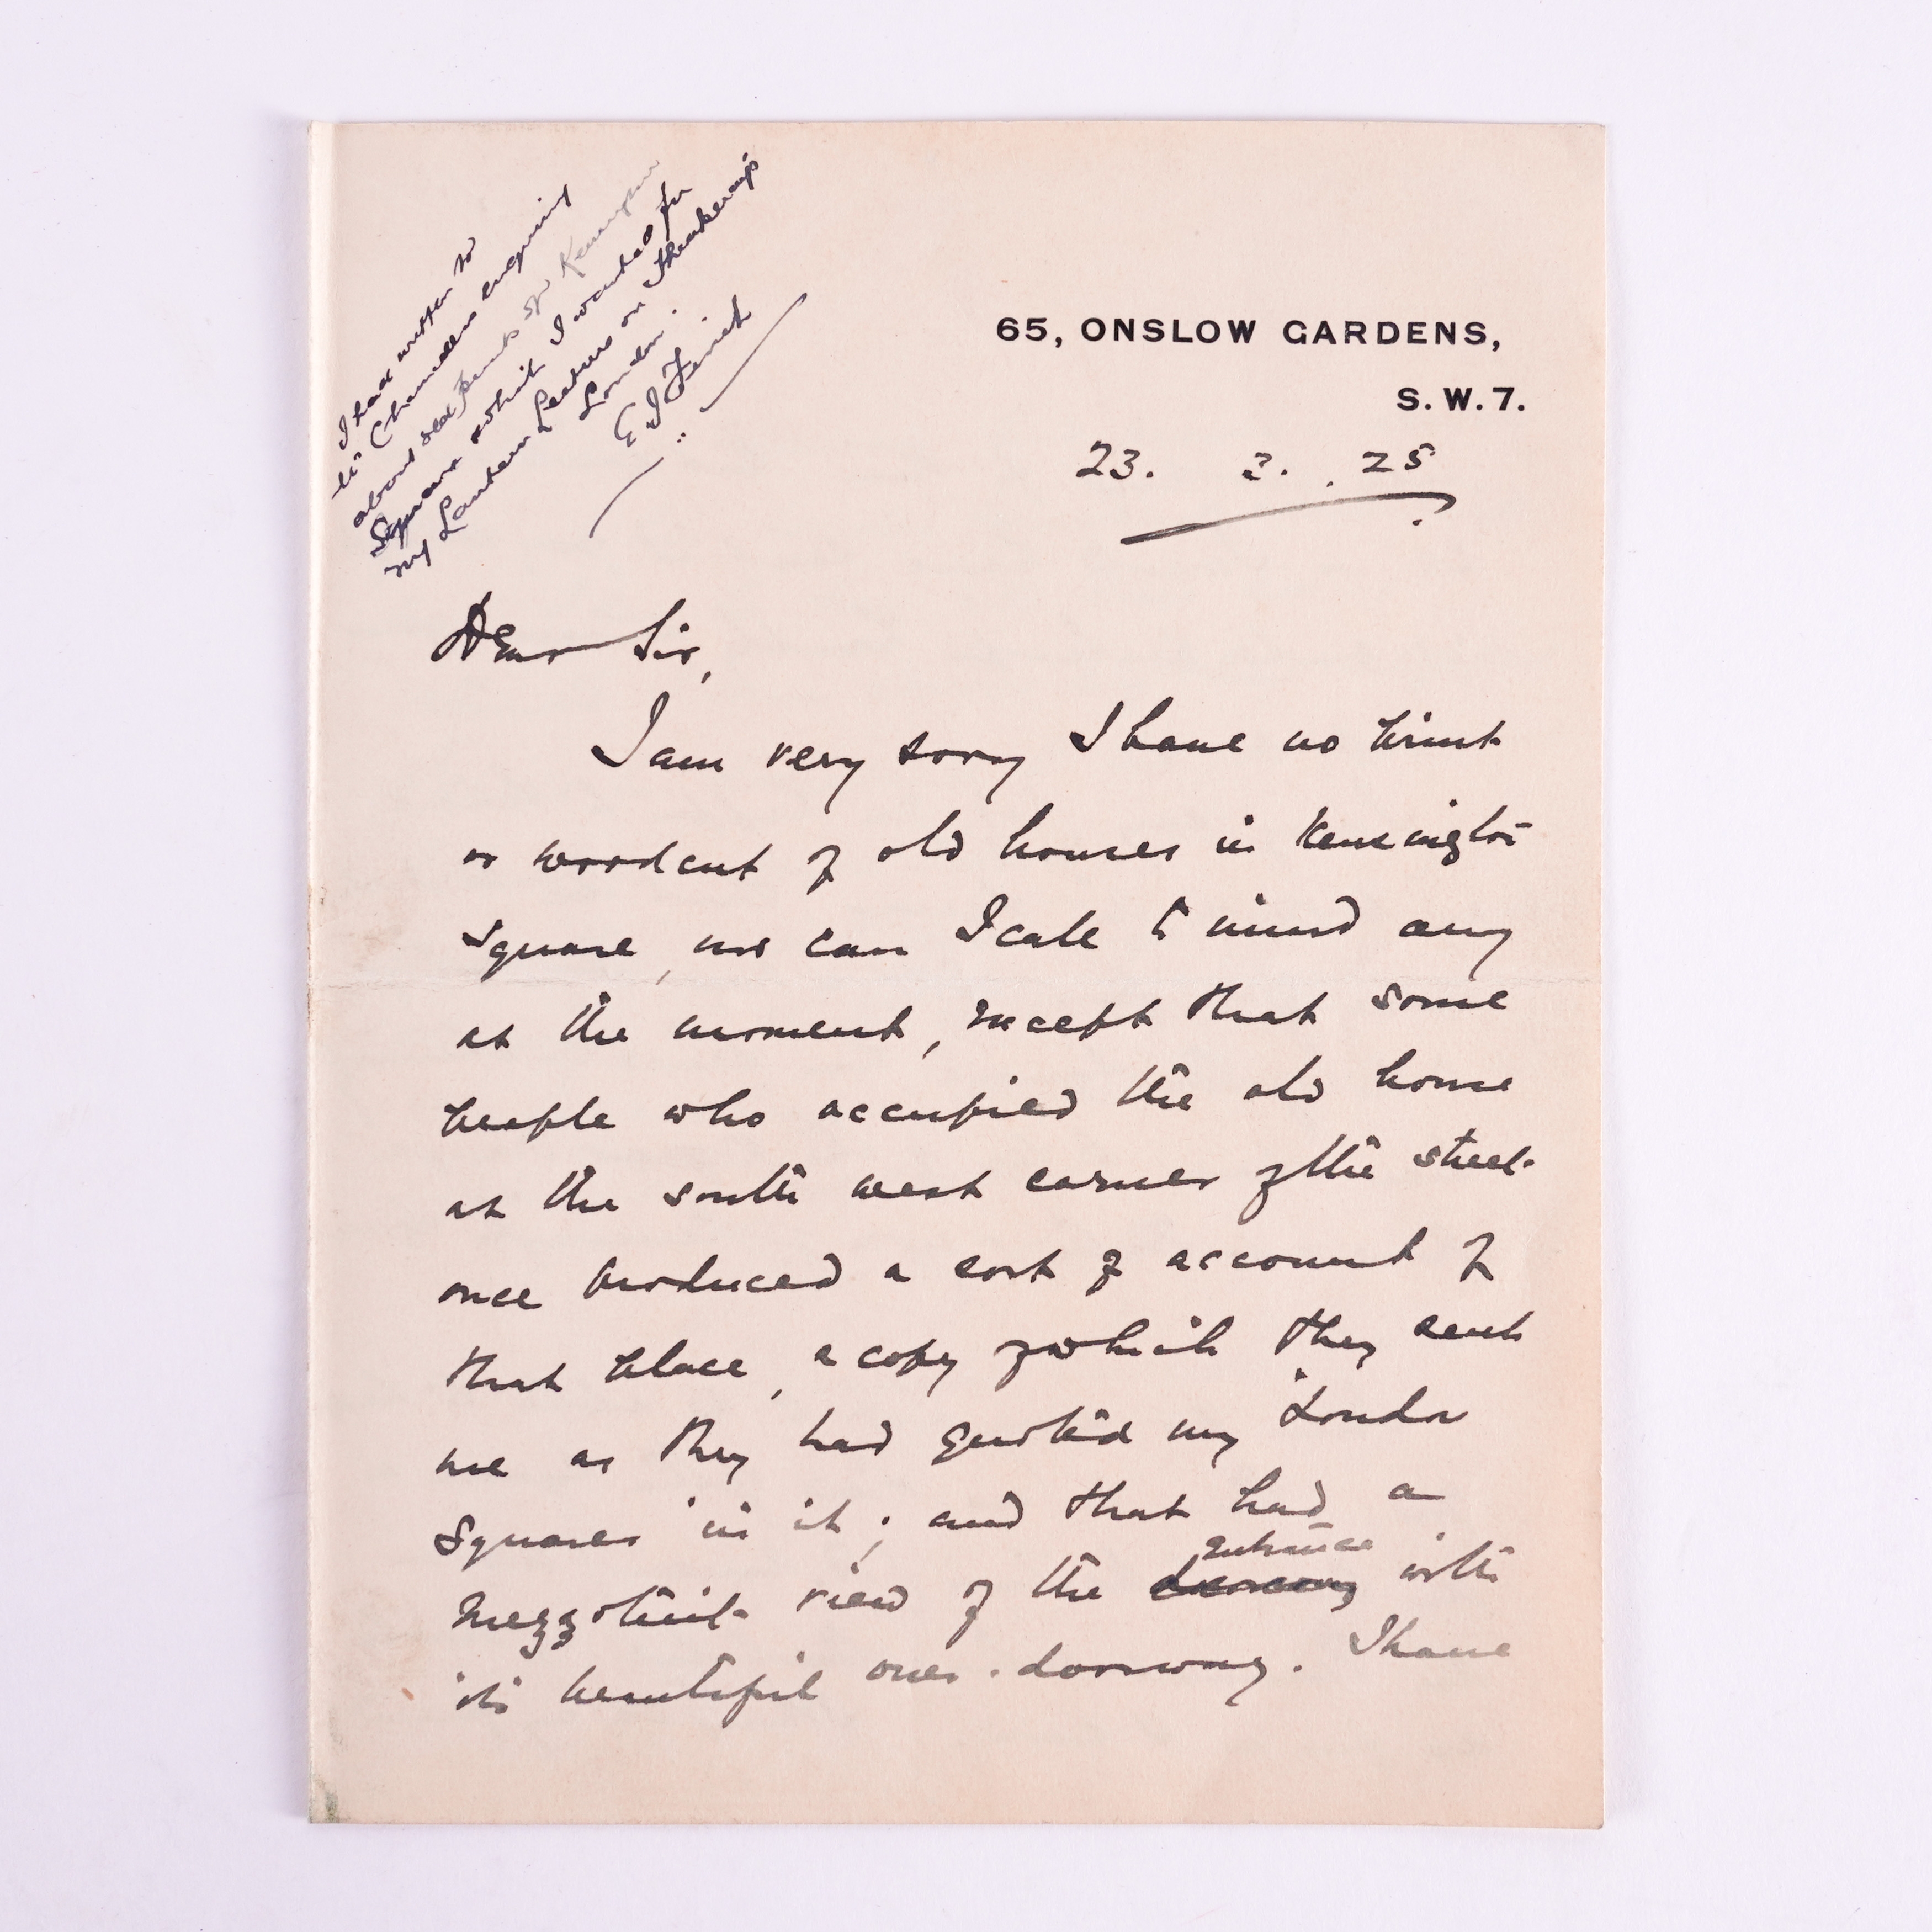 I have written to
Mr Chancellor enquiring
about old prints of Kensington
Square which I wanted for
my Lantern Lecture on Thackeray's
London.
E J Finch
65, ONSLOW GARDENS,
S. W. 7.
23. 2. 25
Dear Sir,
I am very sorry I have no print
or woodcut of old houses in Kensington
Square, nor can I call to mind any
at the moment, except that some
people who occupied the old house
at the south west corner of the street
once produced a sort of account of
that place, a copy of which they sent
me as they had quoted my 'London
Squares' in it; and that had a
entrance
mezzotint view of the doorway with
its beautiful over-doorway. I have